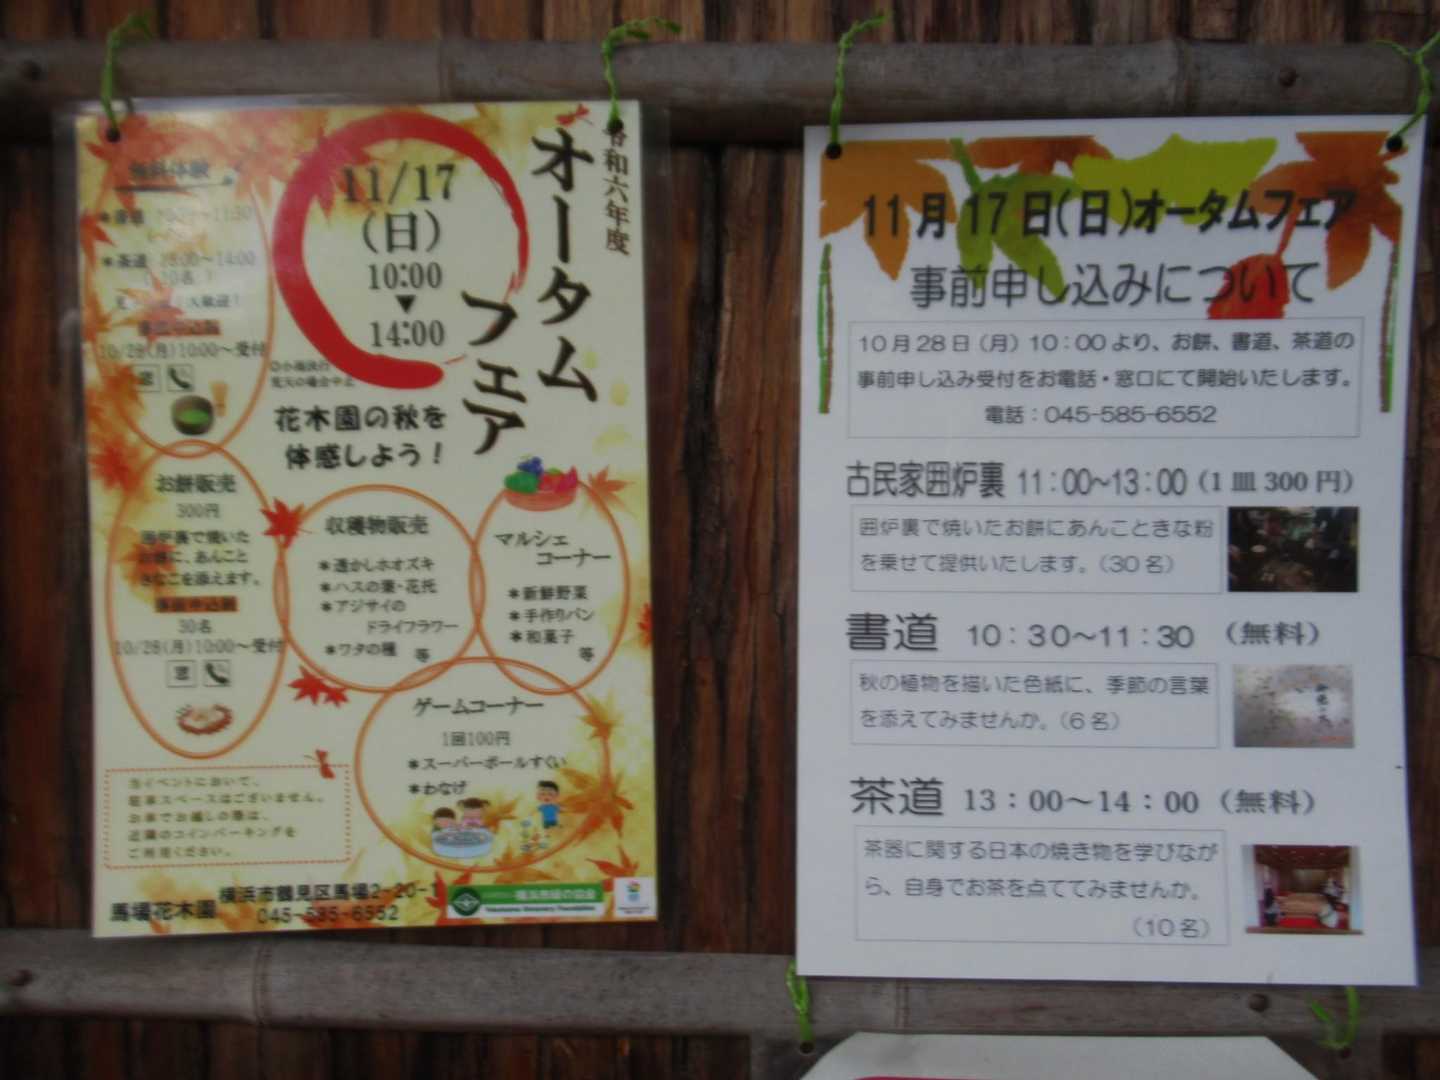 令和六年度
オータム
フェア
11/17
(日)
10:00
▼
14:00
◎小雨決行
荒天の場合中止
花木園の秋を
体感しよう!
無料体験
*書道
～11:30
*茶道 13:00～14:00
10/28(月)10:00～受付
窓
お餅販売
300円
囲炉裏で焼いた
お餅に、あんこと
きなこを添えます。
事前申込制
30名
10/28(月)10:00～受付
窓
収穫物販売
*透かしホオズキ
*ハスの葉・花托
*アジサイの
ドライフラワー
*ワタの種 等
マルシェ
コーナー
*新鮮野菜
*手作りパン
*和菓子
等
ゲームコーナー
1回100円
*スーパーボールすくい
*わなげ
当イベントにおいて、
駐車スペースはございません。
お車でお越しの際は、
近隣のコインパーキングを
ご利用ください。
馬場花木園
横浜市鶴見区馬場2-20-1
045-585-6552
横浜市緑の協会
11月17日(日)オータムフェア
事前申し込みについて
10月28日（月）10：00より、お餅、書道、茶道の
事前申し込み受付をお電話・窓口にて開始いたします。
電話：045-585-6552
古民家囲炉裏 11:00～13:00（1皿300円）
囲炉裏で焼いたお餅にあんこときな粉
を乗せて提供いたします。（30名）
書道 10：30～11：30 （無料）
秋の植物を描いた色紙に、季節の言葉
を添えてみませんか。（6名）
茶道 13：00～14：00（無料）
茶器に関する日本の焼き物を学びなが
ら、自身でお茶を点ててみませんか。
（10名）